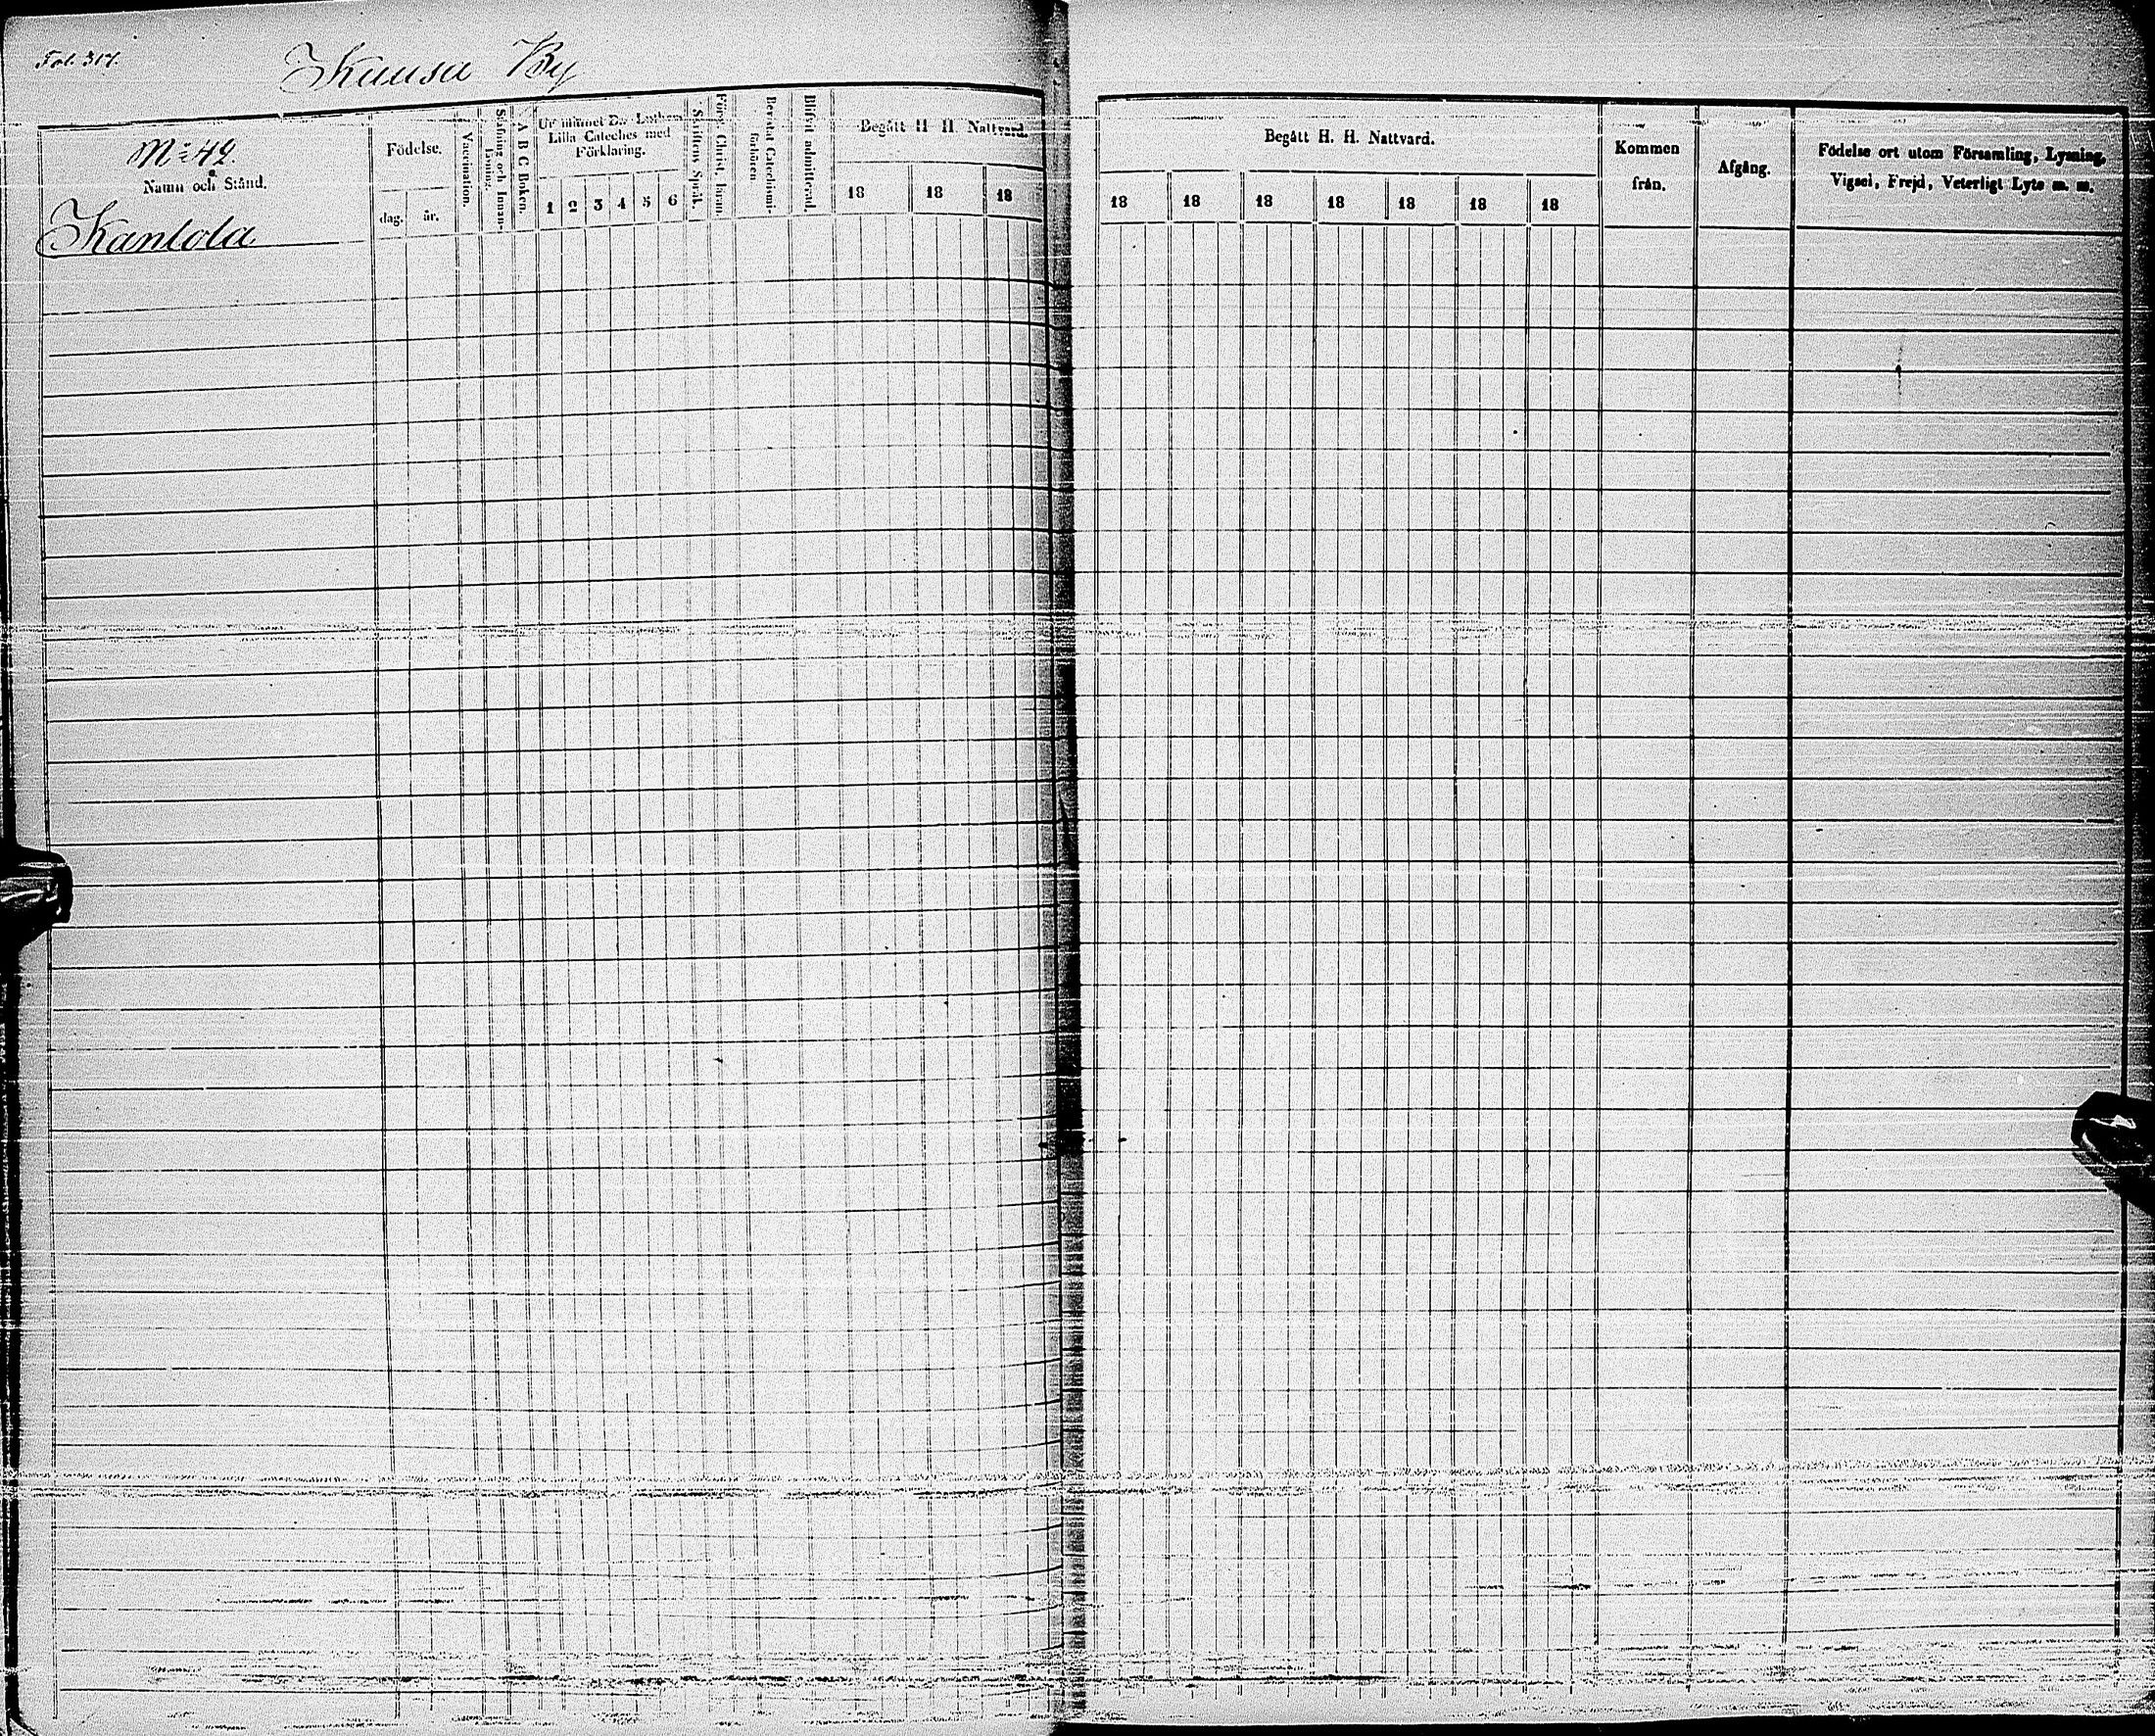 Fol. 317.
Kausa By
Nº 42.
Namn och Stånd.
Kantola
Födelse.
dag. år.
Vaccination.
Stafning och Innan-läsning.
A B C Boken.
Ur minnet D:r Luthers
Lilla Cateches med
Förklaring.
1 2 3 4 5 6
Skriftens Språk.
Bevistat Catechismi-förhören
Blifvit admitterad.
Begått H H Nattvard.
18 18 18
Begått H. H. Nattvard.
18 18 18 18 18 18 18
Kommen
från.
Afgång.
Födelse ort utom Församling, Lysning,
Vigsel, Frejd, Veterligt Lyte m. m.